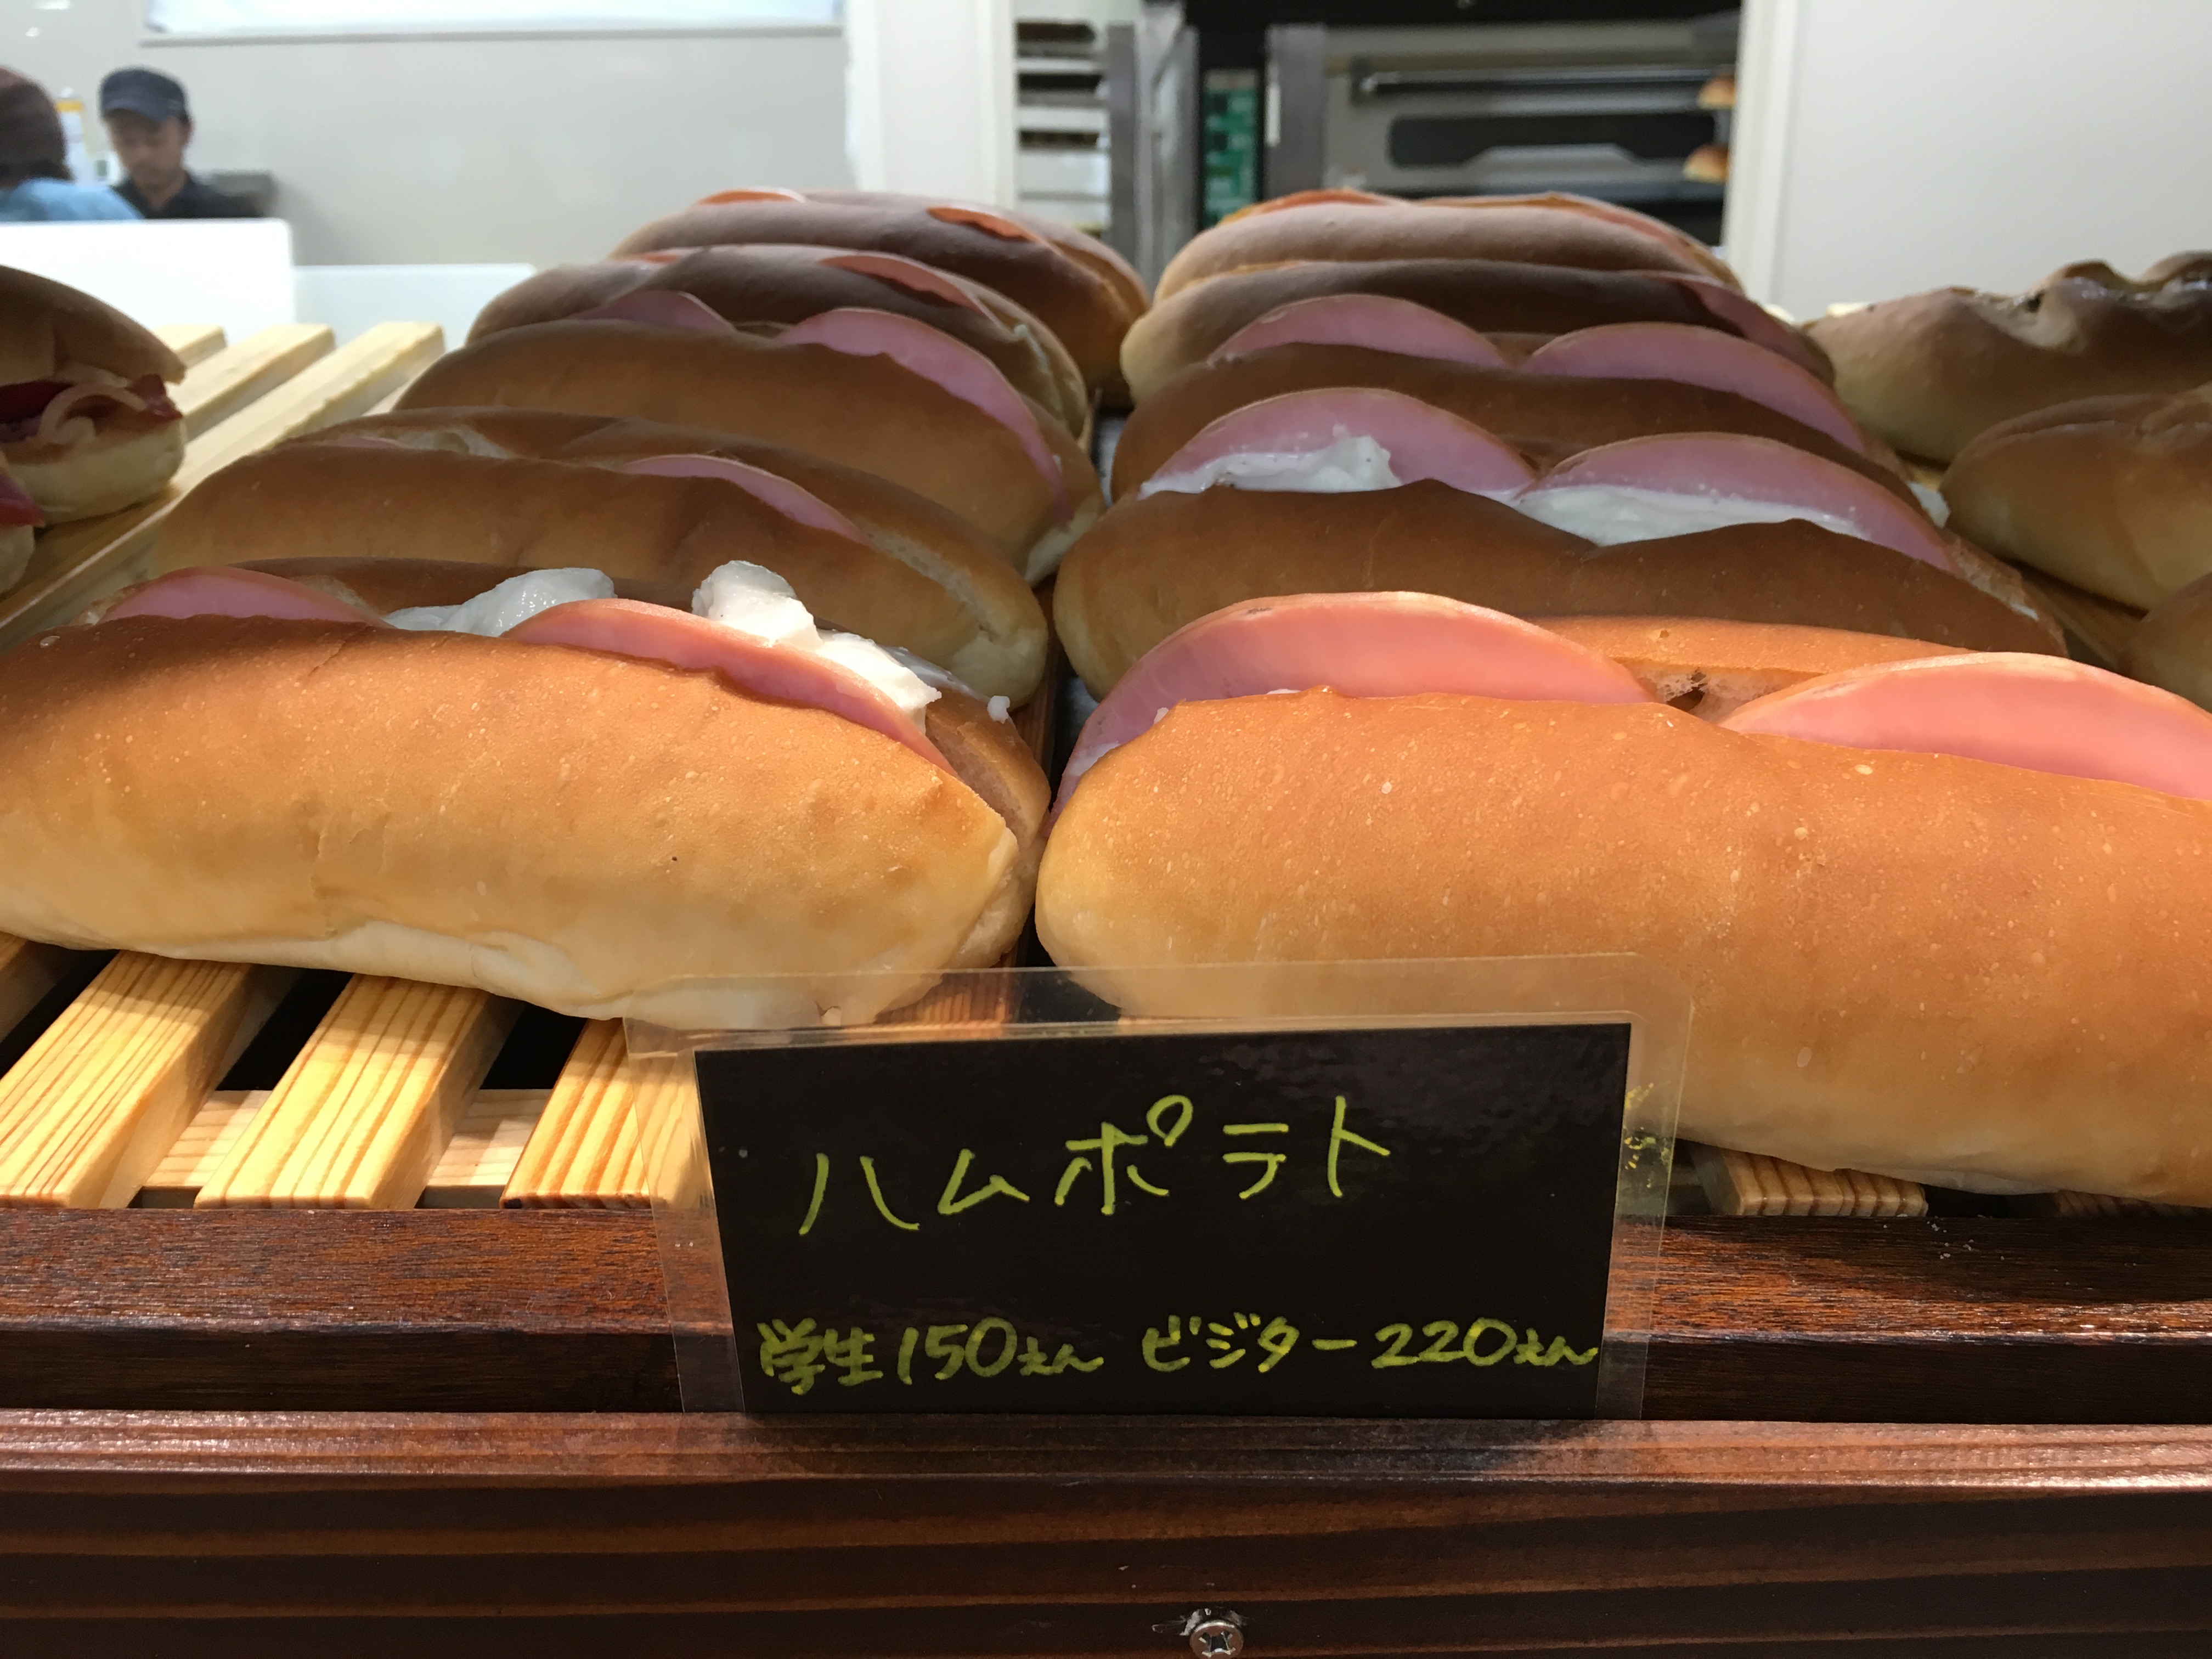 ハムポテト
学生150えん ビジター220えん